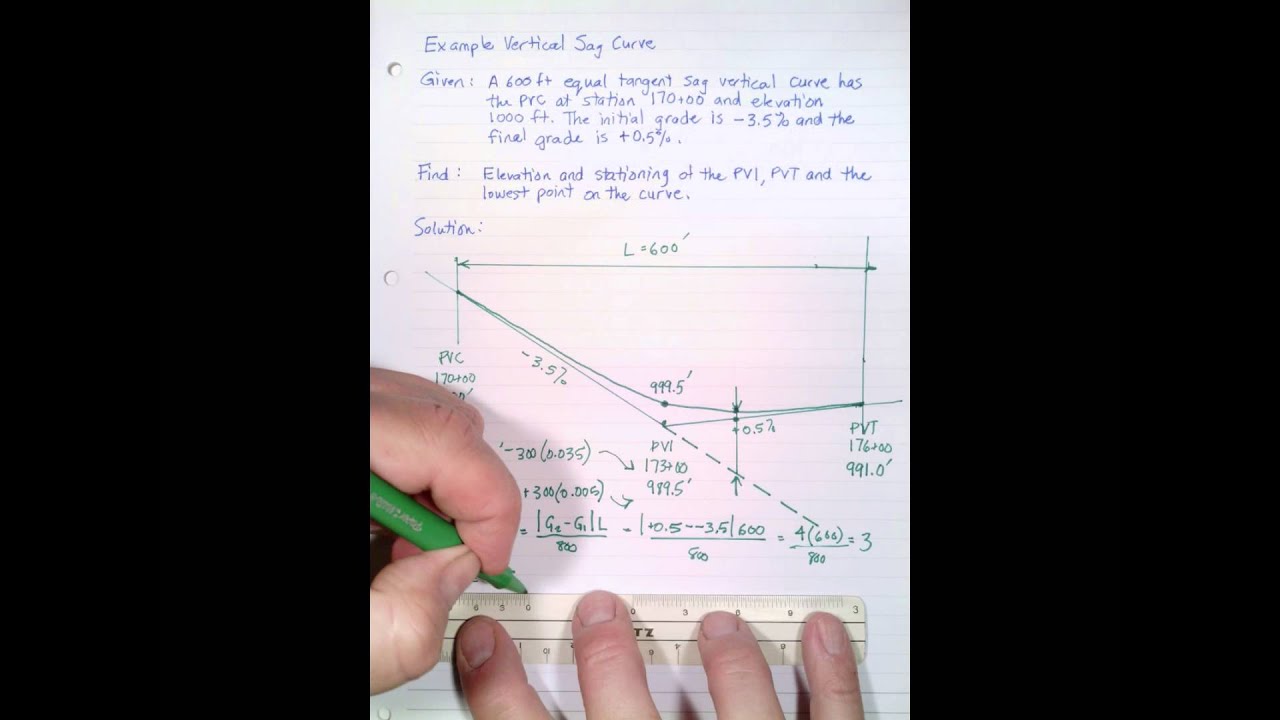 Example Vertical Sag Curve
Given: A 600 ft equal tangent sag vertical curve has
the PVC at station 170+00 and elevation
1000 ft. The initial grade is -3.5% and the
final grade is +0.5%.
Find: Elevation and stationing of the PVI, PVT and the
lowest point on the curve.
Solution:
L=600'
PVC
170+00
-3.5%
999.5'
+0.5%
PVT
176+00
991.0'
PVI
173+00
989.5'
'-300(0.035)
+300(0.005)
= |G2-G1|L / 800 = |+0.5--3.5|600 / 800 = 4(600) / 800 = 3
6 5 0 0 3 6 9 3
TZ
1 10 4